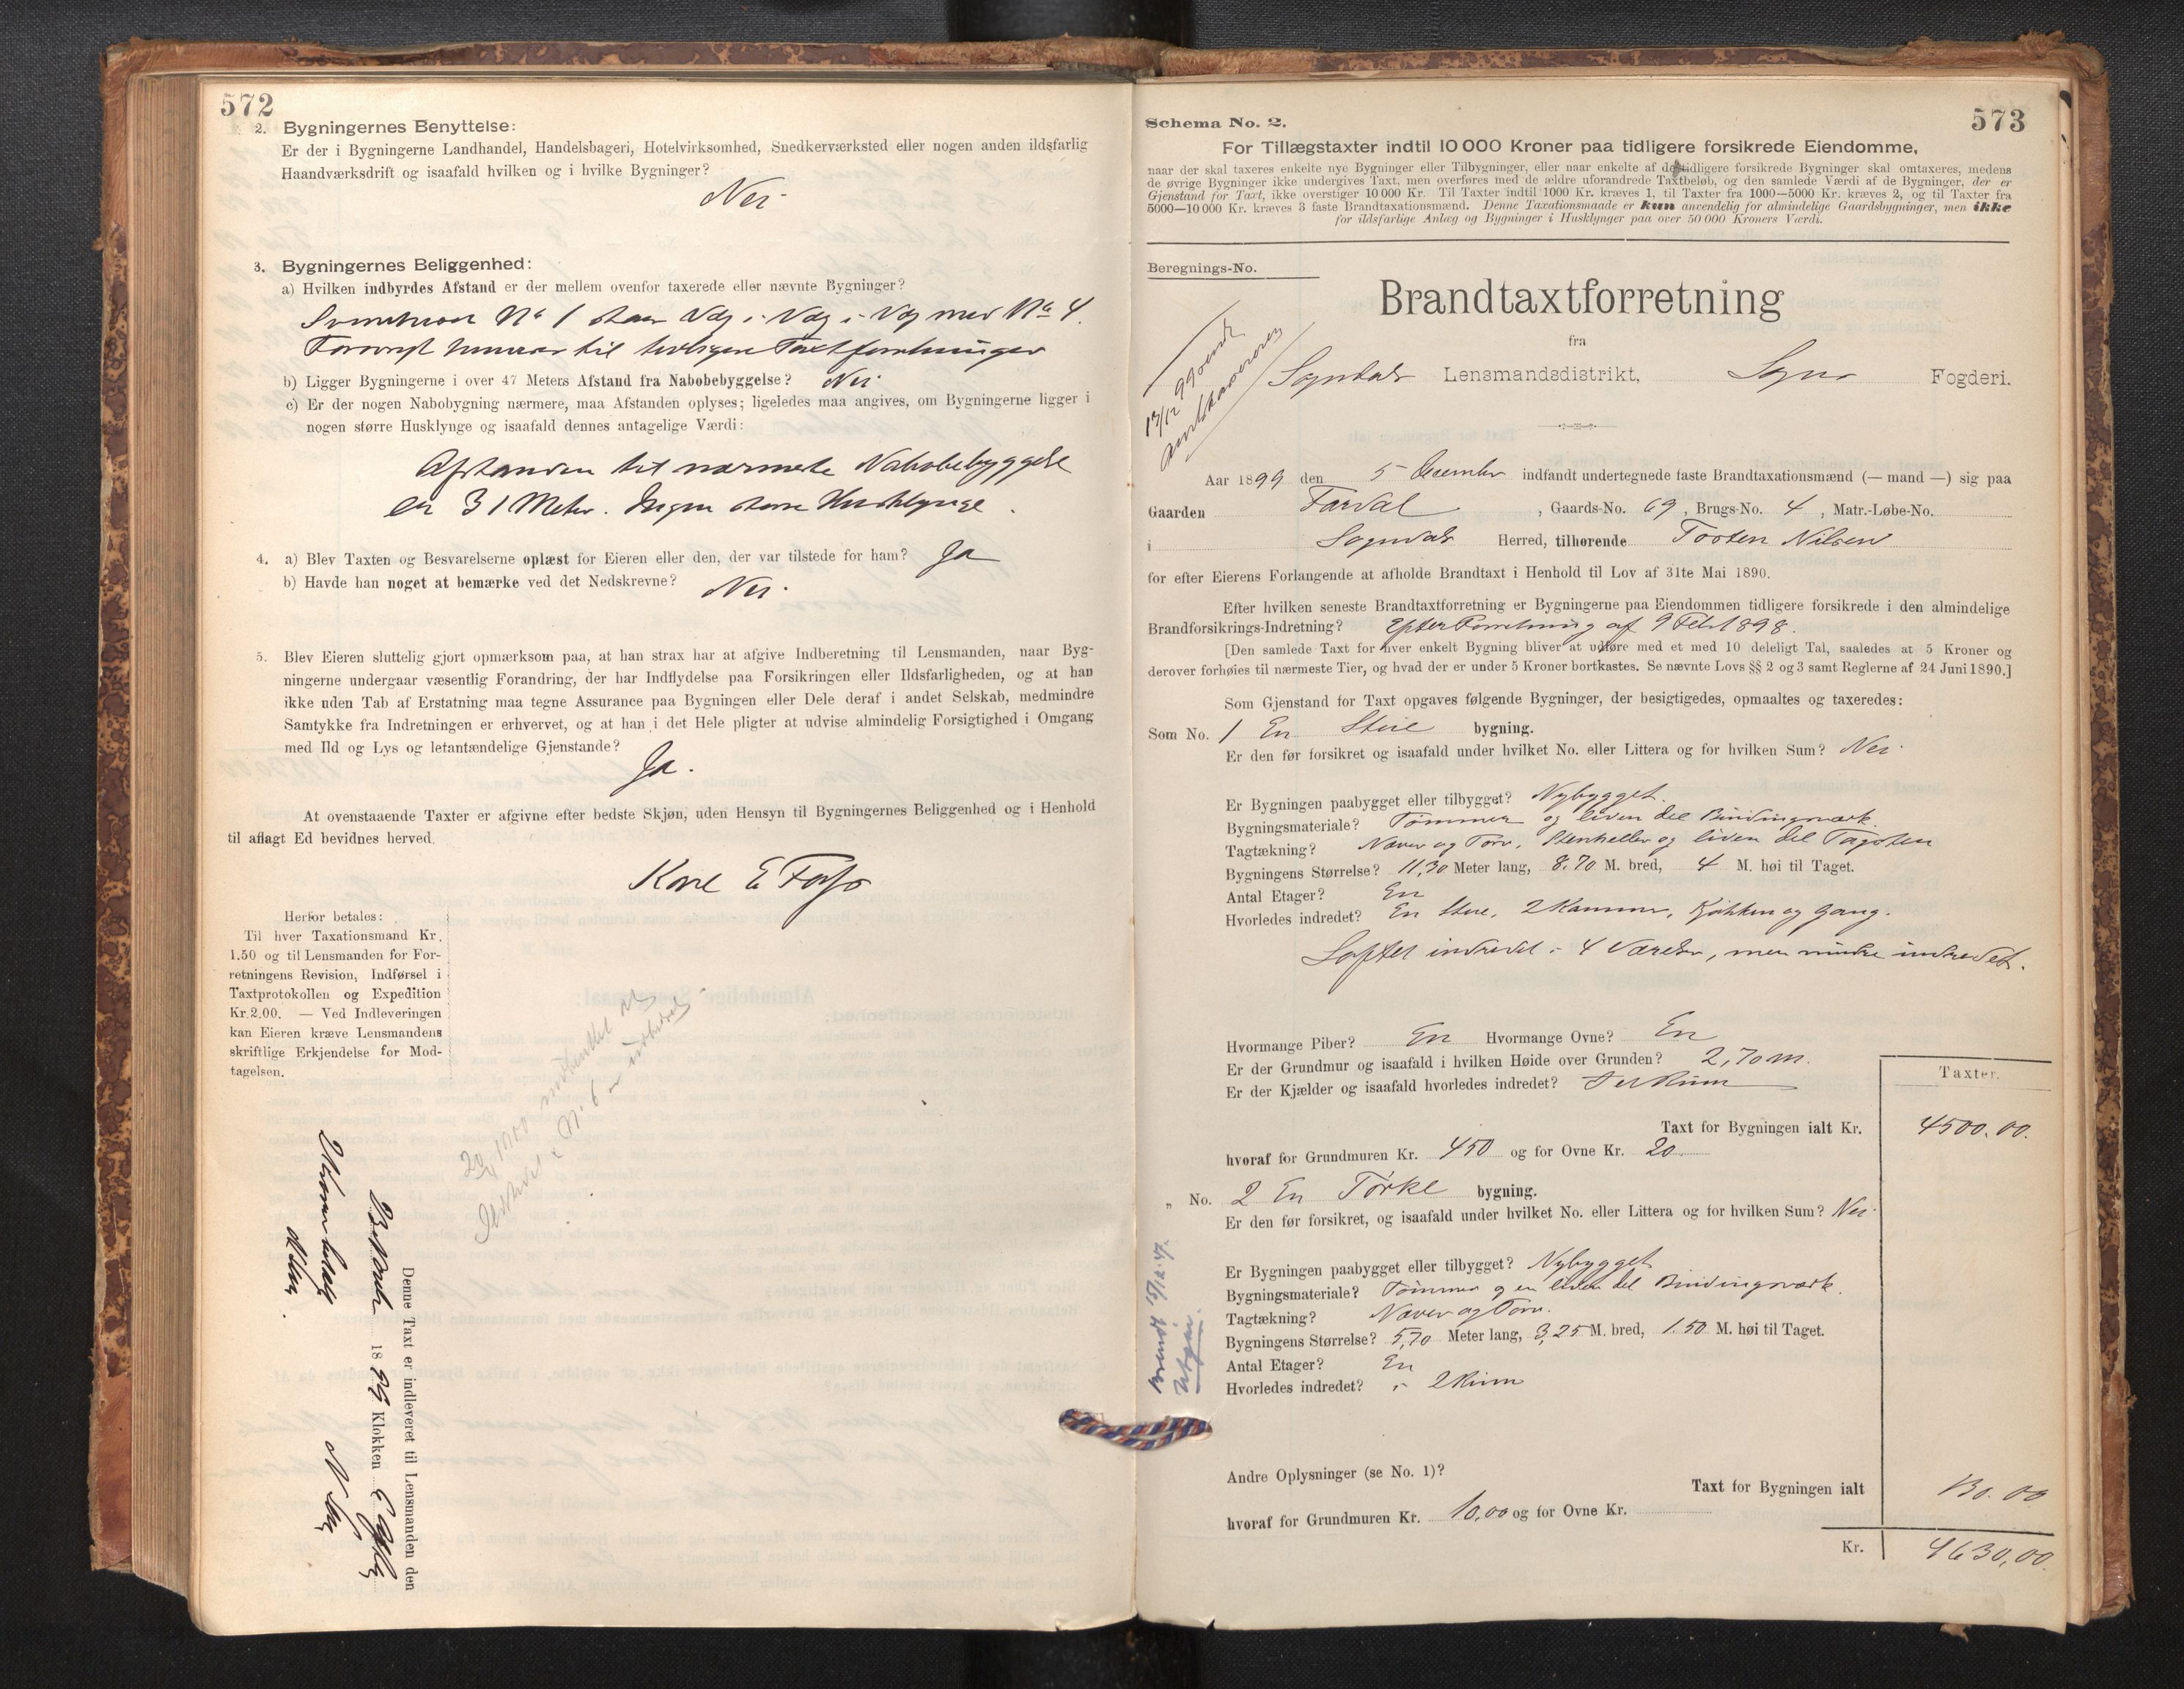 572
2. Bygningernes Benyttelse:
Er der i Bygningerne Landhandel, Handelsbageri, Hotelvirksomhed, Snedkerværksted eller nogen anden ildsfarlig
Haandværksdrift og isaafald hvilken og i hvilke Bygninger?
Nei
3. Bygningernes Beliggenhed:
a) Hvilken indbyrdes Afstand er der mellem ovenfor taxerede eller nævnte Bygninger?
No 1 staar Væg i Væg med No 4.
Forøvrigt til tidligere Taxtforretninger
b) Ligger Bygningerne i over 47 Meters Afstand fra Nabobebyggelse? Nei
c) Er der nogen Nabobygning nærmere, maa Afstanden oplyses; ligeledes maa angives, om Bygningerne ligger i
nogen større Husklynge og isaafald dennes antagelige Værdi:
Afstanden til nærmeste Nabobebyggelse
er 31 Meter. Ingen større Husklynge.
4. a) Blev Taxten og Besvarelserne oplæst for Eieren eller den, der var tilstede for ham? Ja
b) Havde han noget at bemærke ved det Nedskrevne? Nei.
5. Blev Eieren sluttelig gjort opmærksom paa, at han strax har at afgive Indberetning til Lensmanden, naar Byg-
ningerne undergaar væsentlig Forandring, der har Indflydelse paa Forsikringen eller Ildsfarligheden, og at han
ikke uden Tab af Erstatning maa tegne Assurance paa Bygningen eller Dele deraf i andet Selskab, medmindre
Samtykke fra Indretningen er erhvervet, og at han i det Hele pligter at udvise almindelig Forsigtighed i Omgang
med Ild og Lys og letantændelige Gjenstande?
Ja.
At ovenstaaende Taxter er afgivne efter bedste Skjøn, uden Hensyn til Bygningernes Beliggenhed og i Henhold
til aflagt Ed bevidnes herved.
E
Herfor betales:
Til hver Taxationsmand Kr.
1.50 og til Lensmanden for For-
retningens Revision, Indførsel i
Taxtprotokollen og Expedition
Kr.2.00. — Ved Indleveringen
kan Eieren kræve Lensmandens
skriftlige Erkjendelse for Mod-
tagelsen.
No. 6
Denne Taxt er indleveret til Lensmanden den
1899 Klokken
2 Kroner betalt
573
Schema No. 2.
For Tillægstaxter indtil 10 000 Kroner paa tidligere forsikrede Eiendomme,
naar der skal taxeres enkelte nye Bygninger eller Tilbygninger, eller naar enkelte af de tidligere forsikrede Bygninger skal omtaxeres, medens
de øvrige Bygninger ikke undergives Taxt, men overføres med de ældre uforandrede Taxtbeløb, og den samlede Værdi af de Bygninger, der er
Gjenstand for Taxt, ikke overstiger 10 000 Kr. Til Taxter indtil 1000 Kr. kræves 1, til Taxter fra 1000—5000 Kr. kræves 2, og til Taxter fra
5000—10 000 Kr. kræves 3 faste Brandtaxationsmænd. Denne Taxationsmaade er kun anvendelig for almindelige Gaardsbygninger, men ikke
for ildsfarlige Anlæg og Bygninger i Husklynger paa over 50 000 Kroners Værdi.
Beregnings-No.
Brandtaxtforretning
fra
Sogndals Lensmandsdistrikt, Sogns Fogderi.
Aar 1899 den 5 December indfandt undertegnede faste Brandtaxationsmænd (— mand —) sig paa
Gaarden , Gaards-No. 69, Brugs-No. 4, Matr.-Løbe-No.
i Sogndals Herred, tilhørende Torsten Nilsen
for efter Eierens Forlangende at afholde Brandtaxt i Henhold til Lov af 31te Mai 1890.
Efter hvilken seneste Brandtaxtforretning er Bygningerne paa Eiendommen tidligere forsikrede i den almindelige
Brandforsikrings-Indretning? Efter Forretning af 9 Feb. 1898.
[Den samlede Taxt for hver enkelt Bygning bliver at udføre med et med 10 deleligt Tal, saaledes at 5 Kroner og
derover forhøies til nærmeste Tier, og hvad der er under 5 Kroner bortkastes. Se nævnte Lovs §§ 2 og 3 samt Reglerne af 24 Juni 1890.]
Som Gjenstand for Taxt opgaves følgende Bygninger, der besigtigedes, opmaaltes og taxeredes:
Som No. 1 En Stue bygning.
Er den før forsikret og isaafald under hvilket No. eller Littera og for hvilken Sum? Nei
Er Bygningen paabygget eller tilbygget? Nybygget.
Bygningsmateriale? Tømmer og liden del Bindingsværk.
Tagtækning? Næver og Torv, Stenheller og liden del Tagsten
Bygningens Størrelse? 11,30 Meter lang, 8.70 M. bred, 4 M. høi til Taget.
Antal Etager? En
Hvorledes indredet? En Stue, 2 Kammer, Kjøkken og Gang.
Loftet indredet i 4 Værelser, men mindre indredet.
Hvormange Piber? En Hvormange Ovne? En
Er der Grundmur og isaafald i hvilken Høide over Grunden? 2,70 m.
Er der Kjælder og isaafald hvorledes indredet?
Taxter.
Taxt for Bygningen ialt Kr. 4500.00.
hvoraf for Grundmuren Kr. 450 og for Ovne Kr. 20.
„ No. 2 En Tørke bygning.
Er den før forsikret, og isaafald under hvilket No. eller Littera og for hvilken Sum? Nei
Er Bygningen paabygget eller tilbygget? Nybygget
Bygningsmateriale? Tømmer og en liden del Bindingsværk.
Tagtækning? Næver og Torv.
Bygningens Størrelse? 5,70 Meter lang, 3,25 M. bred, 1.50 M. høi til Taget.
Antal Etager? En
Hvorledes indredet? i 2 Rum
Andre Oplysninger (se No. 1)?
Taxt for Bygningen ialt 130.00
hvoraf for Grundmuren Kr. 10,00 og for Ovne Kr.
Kr. 4630,00